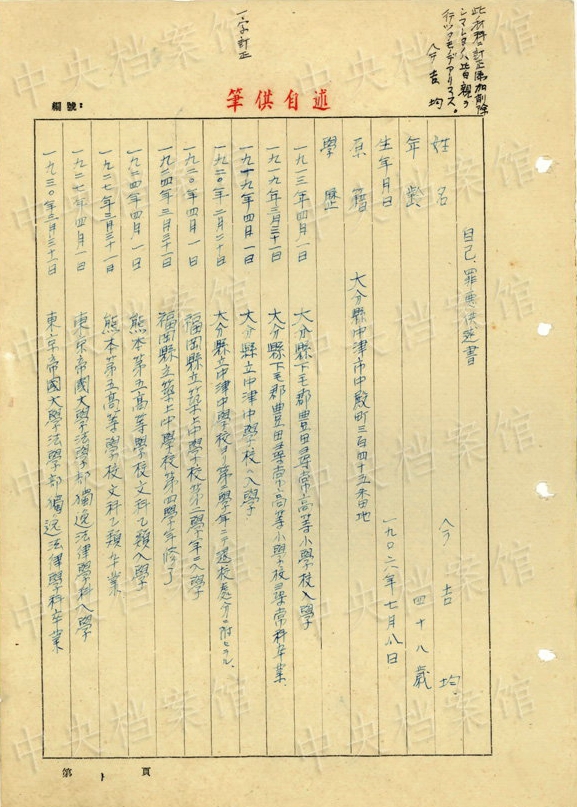 此材料ニ訂正添加削除
シマシタノハ皆親シク
行ッタモノデアリマス。
今吉均
一字訂正
筆供自述
編號：
自己、罪悪供述書
姓名 今吉均
年齢 四十八歳
生年月日 一九〇六年七月八日
原籍 大分縣中津市中殿町三百四十五番地
學歷
一九一三年四月一日 大分縣下毛郡豊田尋常高等小學校入學
一九一九年三月三十一日 大分縣下毛郡豊田尋常高等小學校尋常科卒業
一九一九年四月一日 大分縣立中津中學校へ入學
一九二〇年二月二十日 大分縣立中津中學校ヨリ第二學年ニテ退校處分ニ附セラル
一九二〇年四月一日 福岡縣立築上中學校第二學年ニ入學
一九二四年三月三十一日 福岡縣立築上中學校第四學年修了
一九二四年四月一日 熊本第五高等學校文科乙類入學
一九二七年三月三十一日 熊本第五高等學校文科乙類卒業
一九二七年四月一日 東京帝國大學法學部獨逸法律學科入學
一九三〇年三月三十一日 東京帝國大學法學部獨逸法律學科卒業
第 1 頁
中央档案馆